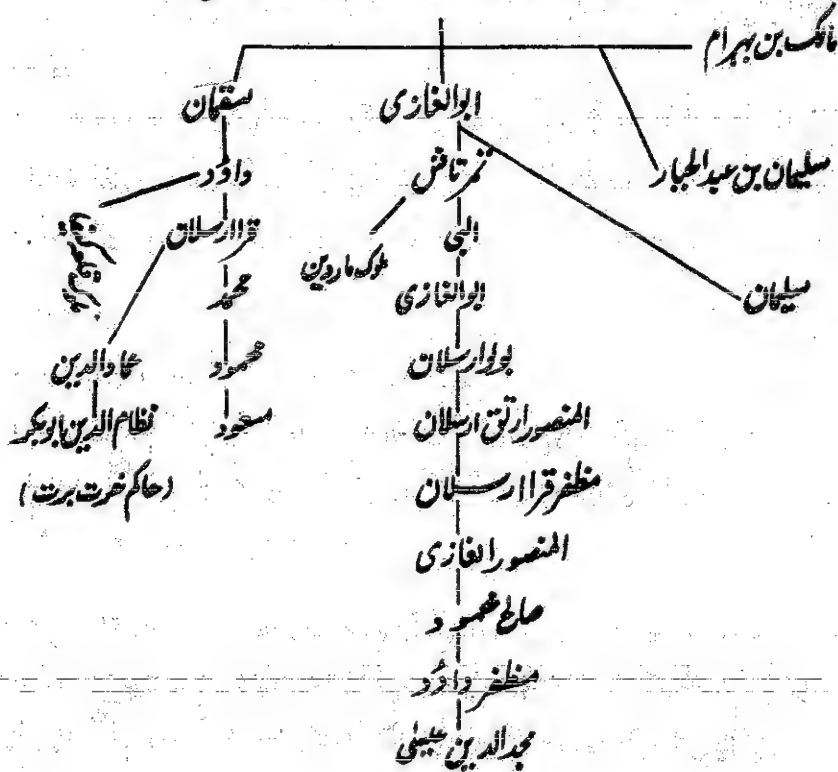 مالک بن بہرام
سقمان ابوالغازی
داؤد تمرتاش سلیمان بن عبدالجبار
قراارسلان البی
ملوک ماردین
محمد ابوالغازی سلیمان
عمادالدین محمود بولوارسلان
نظام الدین ابوبکر مسعود المنصور ارتق ارسلان
(حاکم خرت برت) مظفر قراارسلان
المنصور الغازی
صالح محمود
مظفر داؤد
مجدالدین عیسٰی